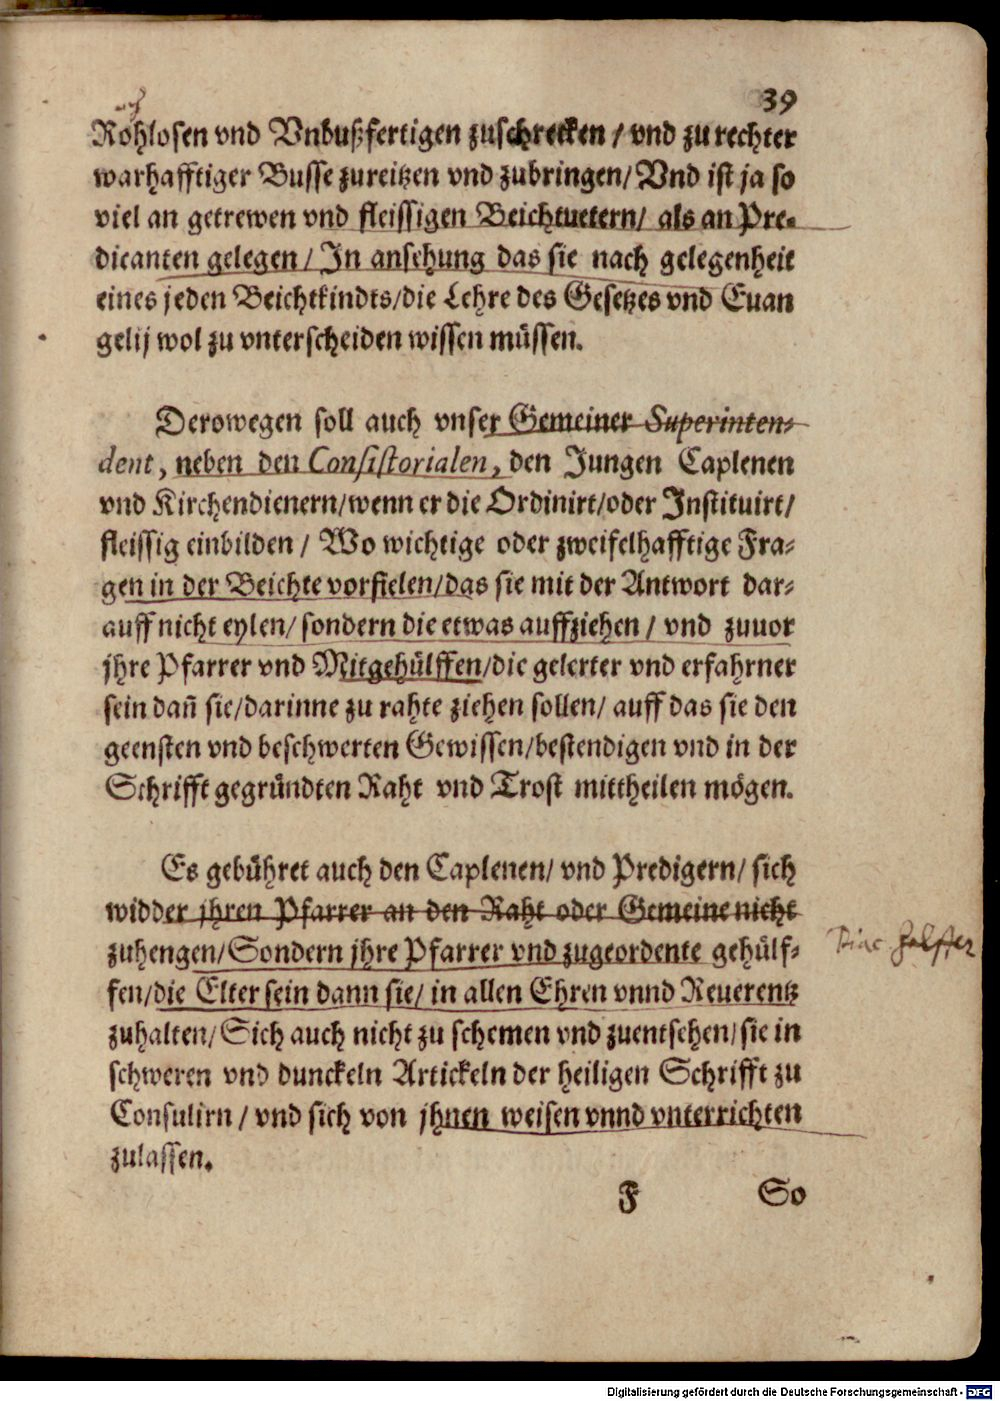 39
Rohlosen vnd Vnbußfertigen zuschrecken / vnd zu rechter
warhafftiger Busse zureitzen vnd zubringen/ Vnd ist ja so
viel an getrewen vnd fleissigen Beichtuetern/ als an Pre-
dicanten gelegen / In ansehung das sie nach gelegenheit
eines jeden Beichtkindts/die Lehre des Gesetzes vnd Euan
gelij wol zu vnterscheiden wissen müssen.
Derowegen soll auch vnser Gemeiner Superinten-
dent, neben den Consistorialen, den Jungen Caplenen
vnd Kirchendienern/wenn er die Ordinirt/oder Instituirt/
fleissig einbilden / Wo wichtige oder zweifelhafftige Fra-
gen in der Beichte vorfielen/das sie mit der Antwort dar-
auff nicht eylen/ sondern die etwas auffziehen / vnd zuuor
jhre Pfarrer vnd Mitgehülffen/die gelerter vnd erfahrner
sein dañ sie/darinne zu rahte ziehen sollen/ auff das sie den
geensten vnd beschwerten Gewissen/bestendigen vnd in der
Schrifft gegründten Raht vnd Trost mittheilen mögen.
Es gebühret auch den Caplenen/ vnd Predigern/ sich
widder jhren Pfarrer an den Raht oder Gemeine nicht
zuhengen/Sondern jhre Pfarrer vnd zugeordente gehülf-
fen/die Elter sein dann sie/ in allen Ehren vnnd Reuerentz
zuhalten/ Sich auch nicht zu schemen vnd zuentsehen/sie in
schweren vnd dunckeln Artickeln der heiligen Schrifft zu
Consulirn / vnd sich von jhnen weisen vnnd vnterrichten
zulassen.
F So
Digitalisierung gefördert durch die Deutsche Forschungsgemeinschaft - DFG